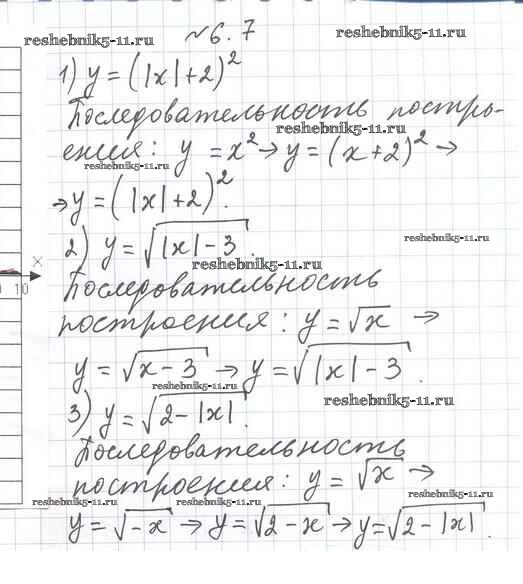 №6.7
reshebnik5-11.ru
reshebnik5-11.ru
1) y = (|x|+2)²
Последовательность постро-
reshebnik5-11.ru
ения: y = x² → y = (x+2)² →
reshebnik5-11.ru
→ y = (|x|+2)².
2) y = √|x|-3.
reshebnik5-11.ru
reshebnik5-11.ru
x
10
Последовательность
построения: y = √x →
y = √x-3 → y = √|x|-3.
reshebnik5-11.ru
3) y = √2-|x|.
reshebnik5-11.ru
Последовательность
построения: y = √x →
reshebnik5-11.ru
reshebnik5-11.ru
reshebnik5-11.ru
y = √-x → y = √2-x → y = √2-|x|.